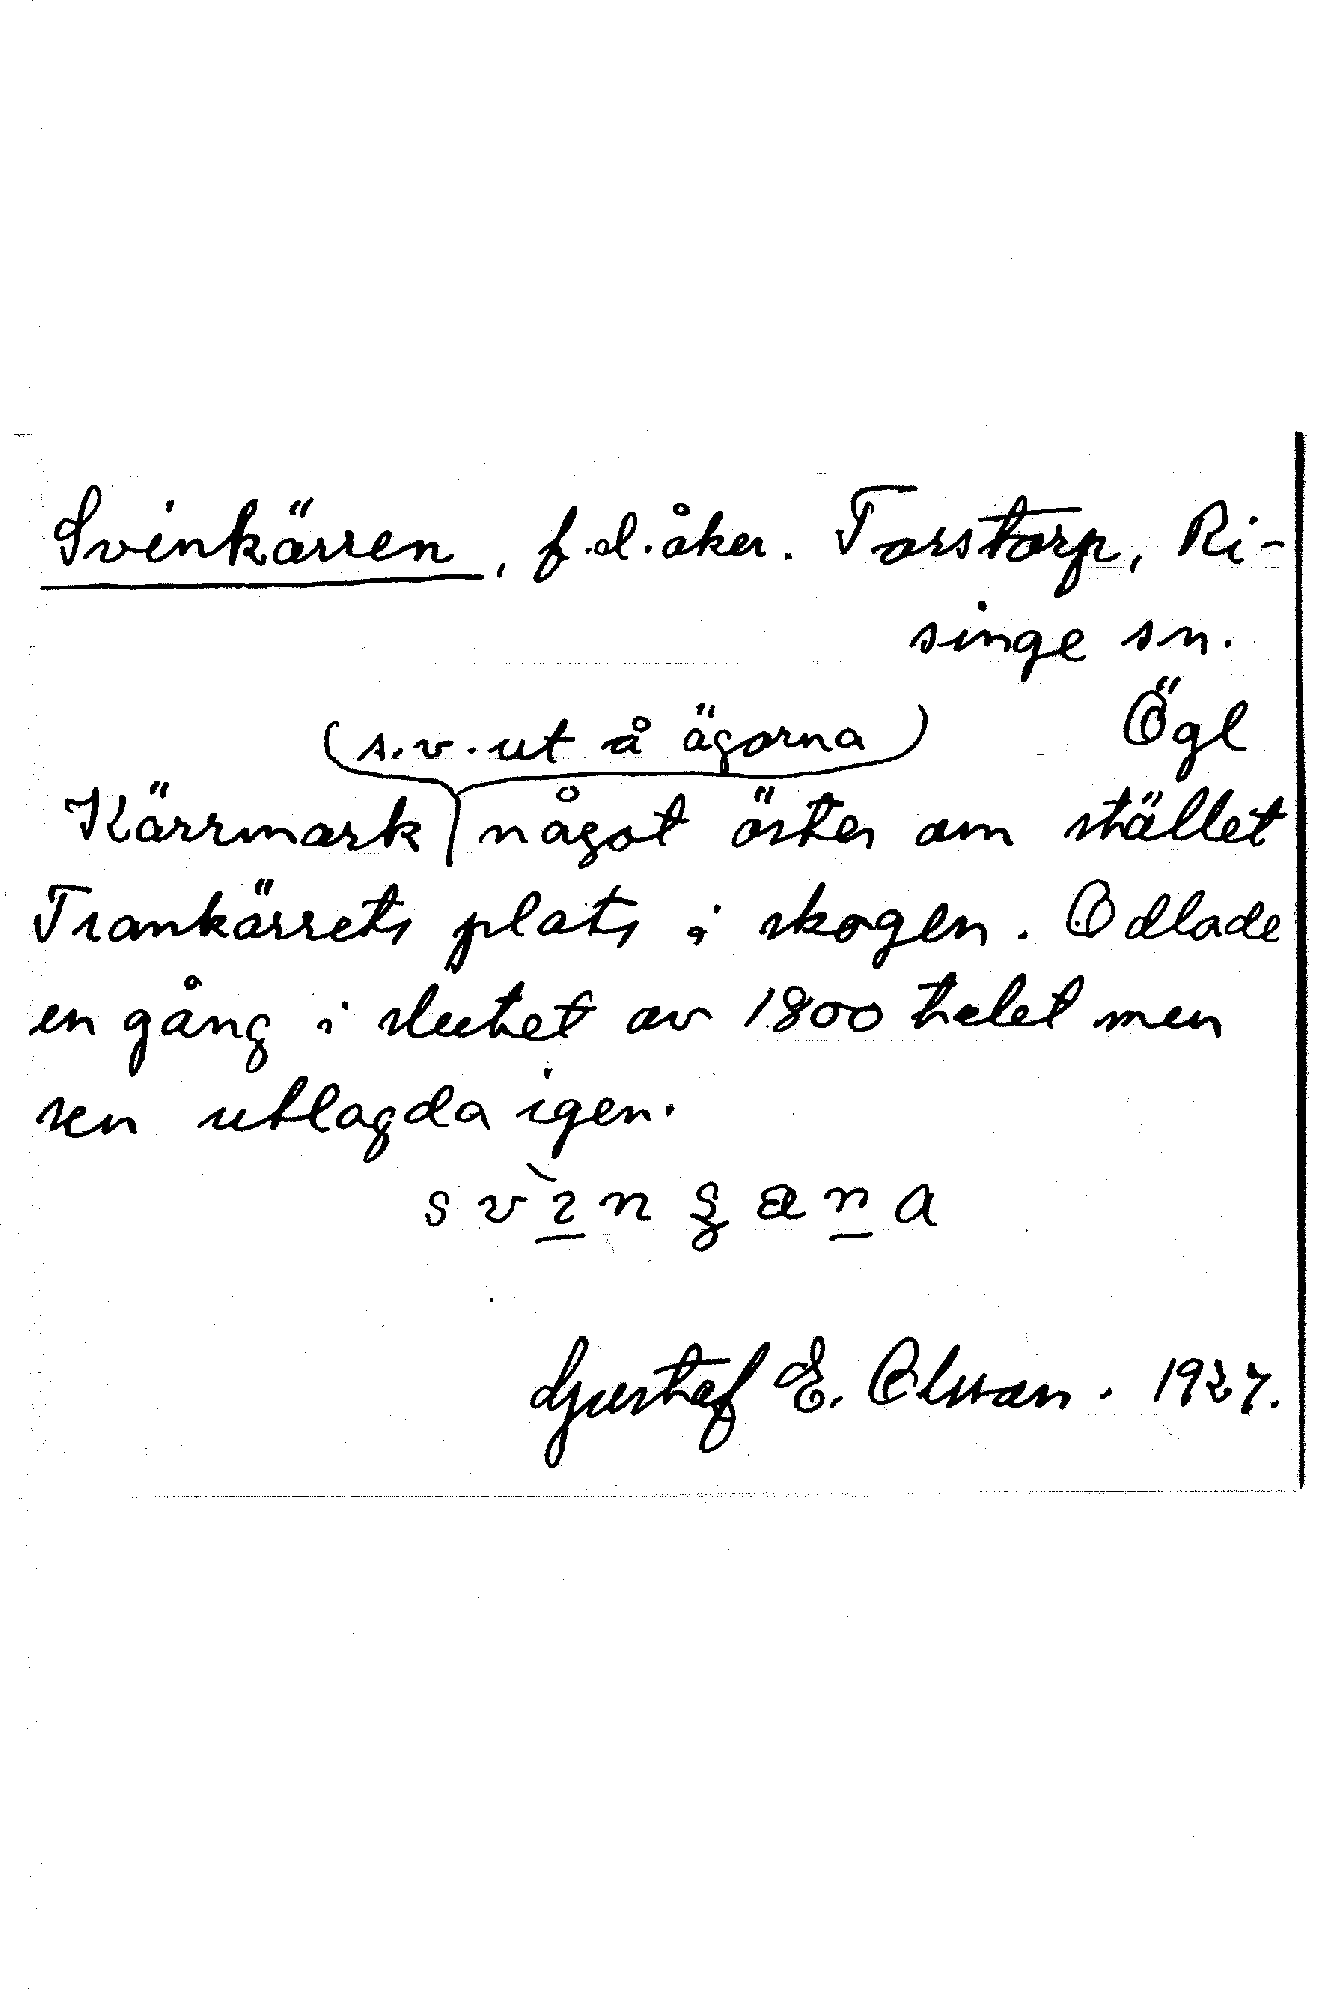 Svinkärren, f.d. åker. Torstorp, Ri-
singe sn.
Ögl
(s.v. ut å ägorna)
Kärrmark något öster om stället
Trankärrets plats i skogen. Odlade
en gång i slutet av 1800 talet men
sen utlagda igen.
Gustaf E. Olsson. 1927.